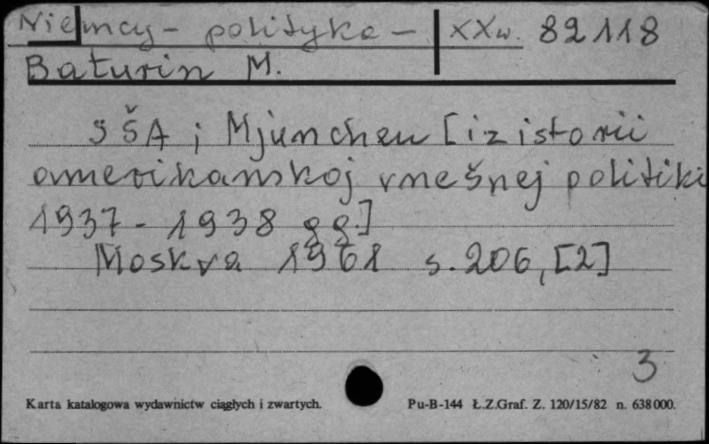 Niemcy - polityka - XXw. 82118
Baturin M.
SŠA i Mjunchen [iz istorii
amerikanskoj vnešnej politiki
1937 - 1938 gg.]
Moskva 1961 s. 206, [2]
3
Karta katalogowa wydawnictw ciągłych i zwartych. Pu-B-144 Ł.Z.Graf. Z. 120/15/82 n. 638000.